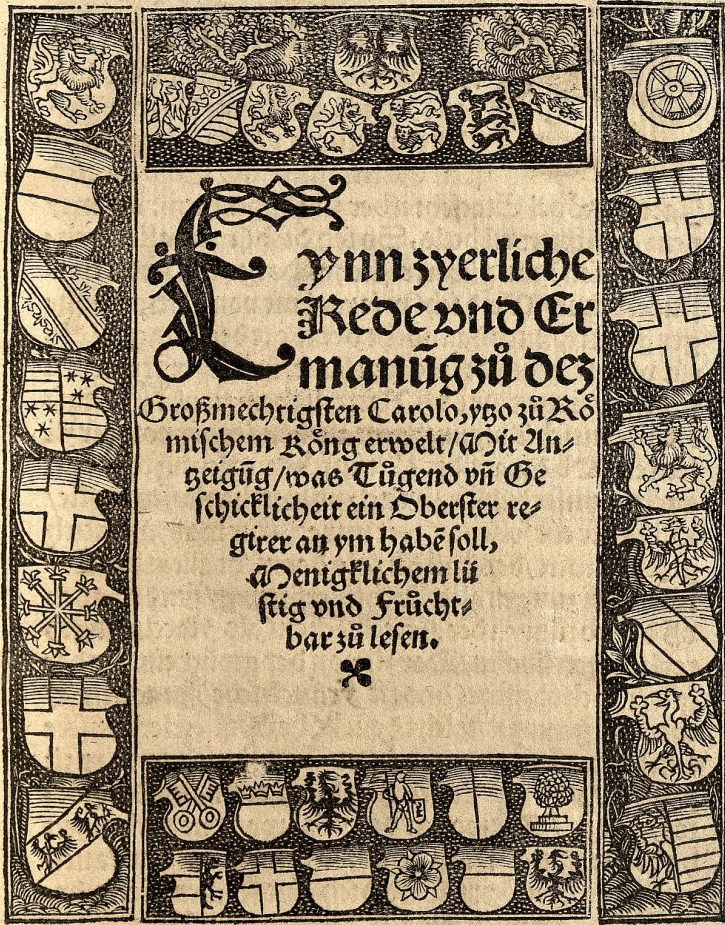 Eynn zyerliche
Rede vnd Er
manūg zů dez
Großmechtigsten Carolo, ytzo zů Rö
mischem Köng erwelt/ Mit An⸗
tzeigūg/ was Tůgend vñ Ge
schicklicheit ein Oberster re⸗
girer an ym habē soll,
Menigklichem lü
stig vnd Frůcht⸗
bar zů lesen.